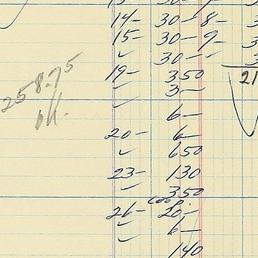 14- 30- 8-
15- 30- 9-
✓ 30-
19- 350
✓ 3-
258.75
OK.
✓ 6-
20- 6-
✓ 650
23- 130
✓ 350
26- 20-
✓ 6-
140